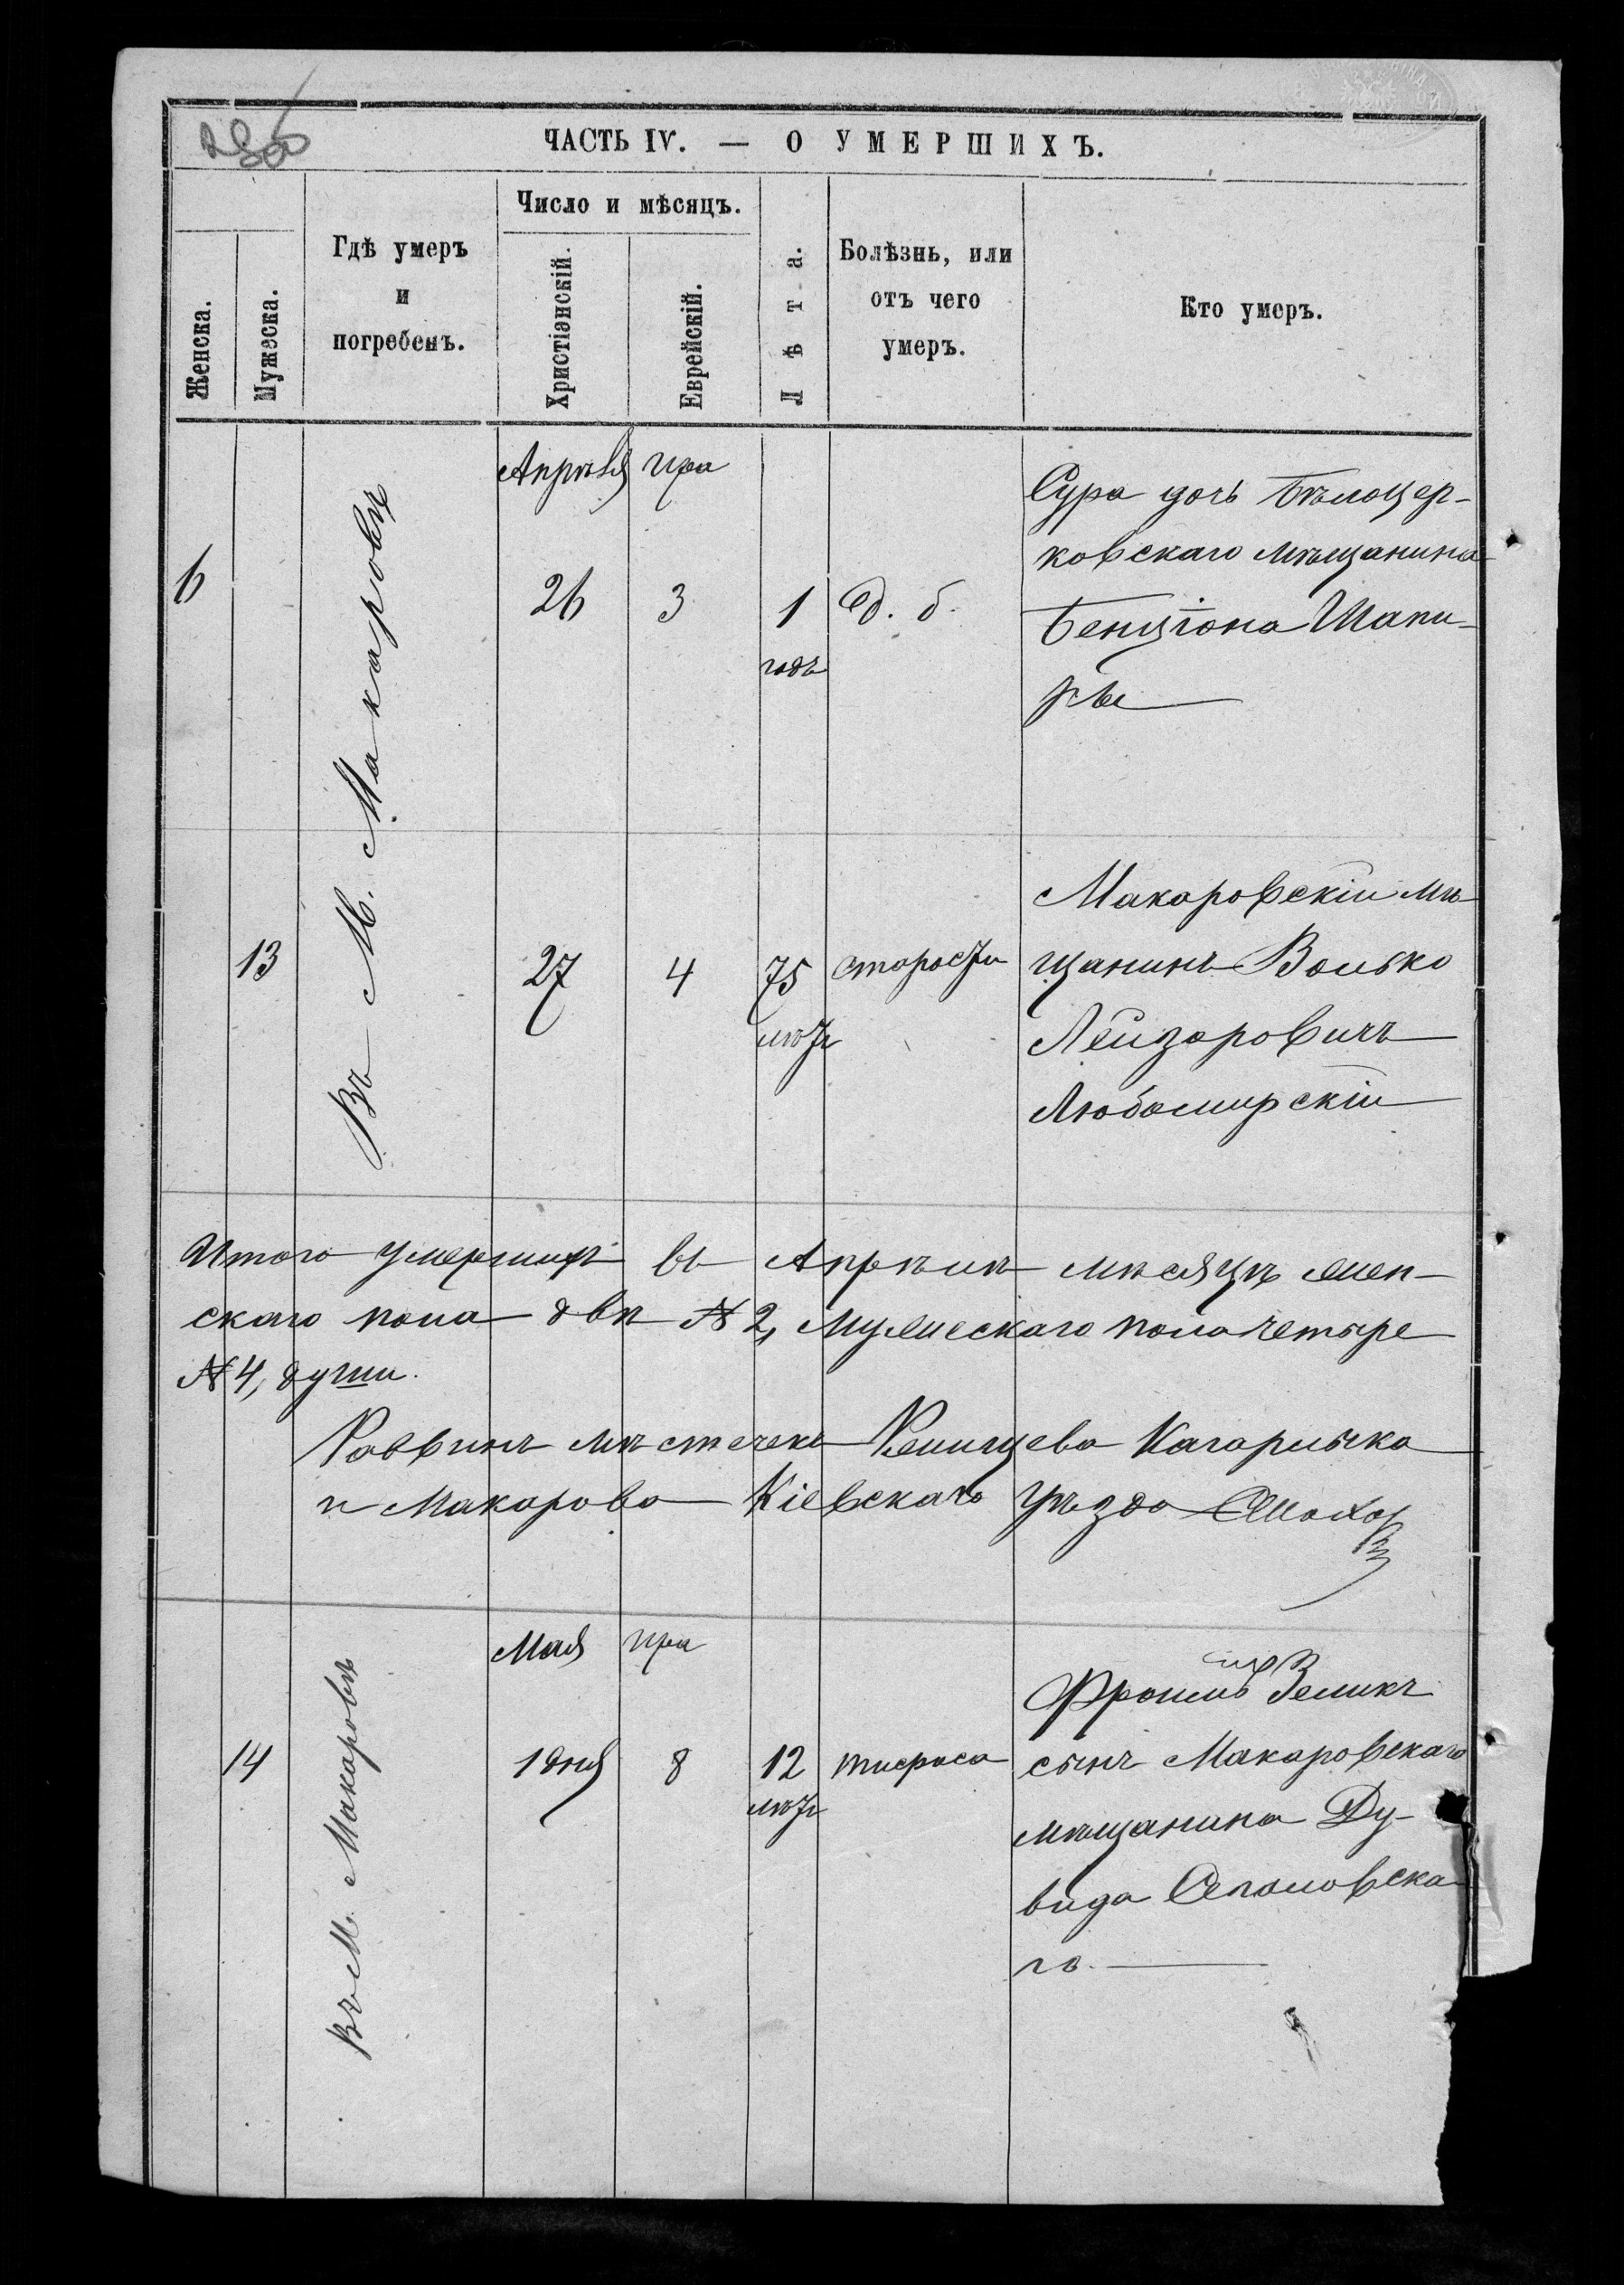 ЧАСТЬ IV. — О УМЕРШИХЪ.
Женска.
Мужеска.
Гдѣ умеръ
и
погребенъ.
Число и мѣсяцъ.
Христіанскій.
Еврейскій.
Лѣта.
Болѣзнь, или
отъ чего
умеръ.
Кто умеръ.
Въ М. Макаровѣ
Апрѣля Ира
6
26 3 1
годъ
Сура дочь Бѣлоцер-
ковскаго мѣщанина
Бенціона Шапи-
ры
13
27 4 75
лѣтъ
старости
Макаровскій мѣ-
щанинъ Волько
Лейзоровичъ
Любомирскій
Итого умершихъ въ Апрѣлѣ мѣсяцѣ жен-
скаго пола двѣ № 2, мужескаго пола четыре
№ 4, души.
Раввинъ мѣстечекъ Кагарлыка
и Макарова Кіевскаго уѣзда
Въ М. Макаровѣ
Мая Ира
14
1 дня 8 12
лѣтъ
тифуса
Фроимъ Зеликъ
сынъ Макаровскаго
мѣщанина Ду-
вида
го.